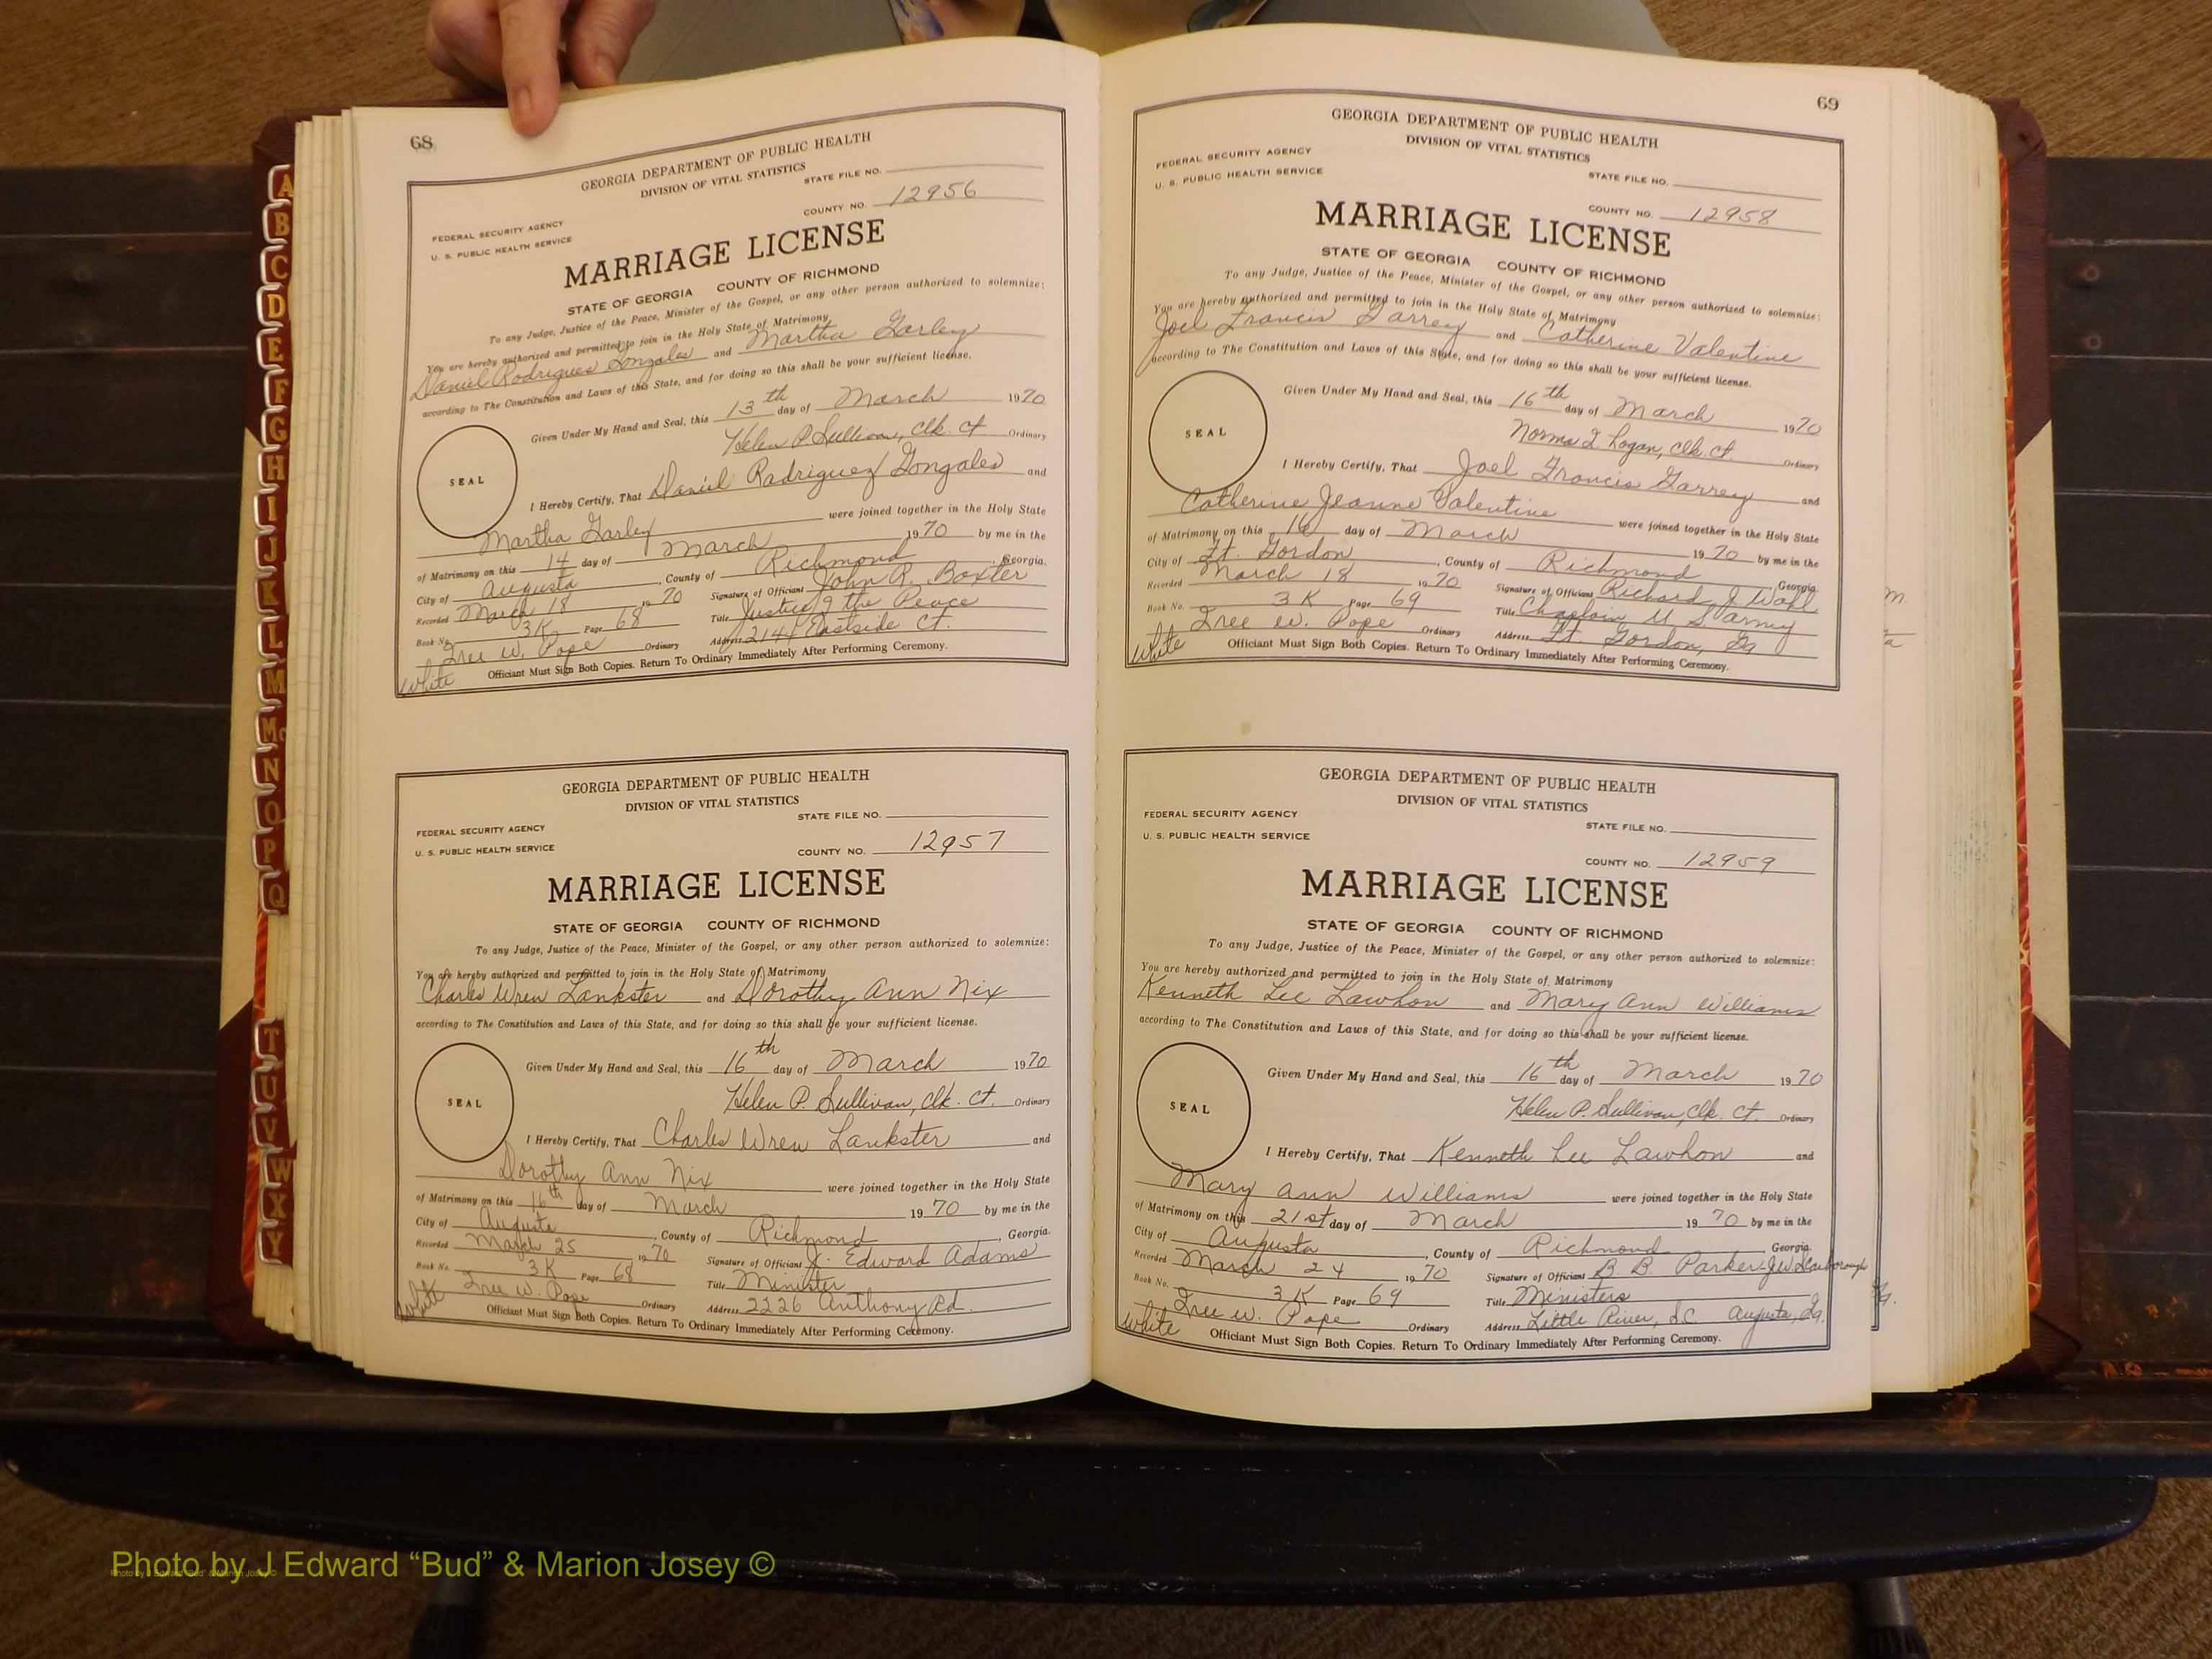 68
GEORGIA DEPARTMENT OF PUBLIC HEALTH
DIVISION OF VITAL STATISTICS
STATE FILE NO.
FEDERAL SECURITY AGENCY
U. S. PUBLIC HEALTH SERVICE
COUNTY NO. 12956
MARRIAGE LICENSE
STATE OF GEORGIA COUNTY OF RICHMOND
To any Judge, Justice of the Peace, Minister of the Gospel, or any other person authorized to solemnize:
You are hereby authorized and permitted to join in the Holy State of Matrimony
Daniel Rodrigues Gonzales and Martha Garley
according to The Constitution and Laws of this State, and for doing so this shall be your sufficient license.
Given Under My Hand and Seal, this 13th day of March 1970
Helen P. Sullivan, Clk. Ct Ordinary
SEAL
I Hereby Certify, That Daniel Radriguez Gongales and
Martha Garley were joined together in the Holy State
of Matrimony on this 14 day of March 1970 by me in the
City of Augusta, County of Richmond, Georgia.
Recorded March 18 1970 Signature of Officiant John R. Baxter
Book No. 3K Page 68 Title Justice of the Peace
Iree W. Pope Ordinary Address 2141 Eastside Ct.
Officiant Must Sign Both Copies. Return To Ordinary Immediately After Performing Ceremony.
White
GEORGIA DEPARTMENT OF PUBLIC HEALTH
DIVISION OF VITAL STATISTICS
STATE FILE NO.
FEDERAL SECURITY AGENCY
U. S. PUBLIC HEALTH SERVICE
COUNTY NO. 12957
MARRIAGE LICENSE
STATE OF GEORGIA COUNTY OF RICHMOND
To any Judge, Justice of the Peace, Minister of the Gospel, or any other person authorized to solemnize:
You are hereby authorized and permitted to join in the Holy State of Matrimony
Charles Wren Lankster and Dorothy Ann Nix
according to The Constitution and Laws of this State, and for doing so this shall be your sufficient license.
Given Under My Hand and Seal, this 16th day of March 1970
Helen P. Sullivan, Clk. Ct. Ordinary
SEAL
I Hereby Certify, That Charles Wren Lankster and
Dorothy Ann Nix were joined together in the Holy State
of Matrimony on this 16th day of March 1970 by me in the
City of Augusta, County of Richmond, Georgia.
Recorded March 25 1970 Signature of Officiant J. Edward Adams
Book No. 3K Page 68 Title Minister
Iree W. Pope Ordinary Address 2226 Anthony Rd.
White
Officiant Must Sign Both Copies. Return To Ordinary Immediately After Performing Ceremony.
69
GEORGIA DEPARTMENT OF PUBLIC HEALTH
DIVISION OF VITAL STATISTICS
FEDERAL SECURITY AGENCY
U. S. PUBLIC HEALTH SERVICE
STATE FILE NO.
COUNTY NO. 12958
MARRIAGE LICENSE
STATE OF GEORGIA COUNTY OF RICHMOND
To any Judge, Justice of the Peace, Minister of the Gospel, or any other person authorized to solemnize:
You are hereby authorized and permitted to join in the Holy State of Matrimony
Joel Francis Garrey and Catherine Valentine
according to The Constitution and Laws of this State, and for doing so this shall be your sufficient license.
Given Under My Hand and Seal, this 16th day of March 1970
Norma I. Logan, Clk. Ct. Ordinary
SEAL
I Hereby Certify, That Joel Francis Garrey and
Catherine Jeanne Valentine were joined together in the Holy State
of Matrimony on this 16 day of March 1970 by me in the
City of Ft. Gordon, County of Richmond, Georgia.
Recorded March 18 1970 Signature of Officiant Richard J Wahl
Book No. 3K Page 69 Title Chaplain U S Army
Iree W. Pope Ordinary Address Ft. Gordon, Ga
White
Officiant Must Sign Both Copies. Return To Ordinary Immediately After Performing Ceremony.
GEORGIA DEPARTMENT OF PUBLIC HEALTH
DIVISION OF VITAL STATISTICS
FEDERAL SECURITY AGENCY
U. S. PUBLIC HEALTH SERVICE
STATE FILE NO.
COUNTY NO. 12959
MARRIAGE LICENSE
STATE OF GEORGIA COUNTY OF RICHMOND
To any Judge, Justice of the Peace, Minister of the Gospel, or any other person authorized to solemnize:
You are hereby authorized and permitted to join in the Holy State of Matrimony
Kenneth Lee Lawhon and Mary Ann Williams
according to The Constitution and Laws of this State, and for doing so this shall be your sufficient license.
Given Under My Hand and Seal, this 16th day of March 1970
Helen P. Sullivan, Clk. Ct. Ordinary
SEAL
I Hereby Certify, That Kenneth Lee Lawhon and
Mary Ann Williams were joined together in the Holy State
of Matrimony on this 21st day of March 1970 by me in the
City of Augusta, County of Richmond Georgia.
Recorded March 24 1970 Signature of Officiant B B. Parker-J.W. Scarborough
Book No. 3K Page 69 Title Ministers
Iree W. Pope Ordinary Address Little River, S.C. Augusta, Ga.
White
Officiant Must Sign Both Copies. Return To Ordinary Immediately After Performing Ceremony.
A
B
C
D
E
F
G
H
I
J
K
L
M
Mc
N
O
P
Q
T
U
V
W
X
Y
Photo by J Edward “Bud” & Marion Josey ©